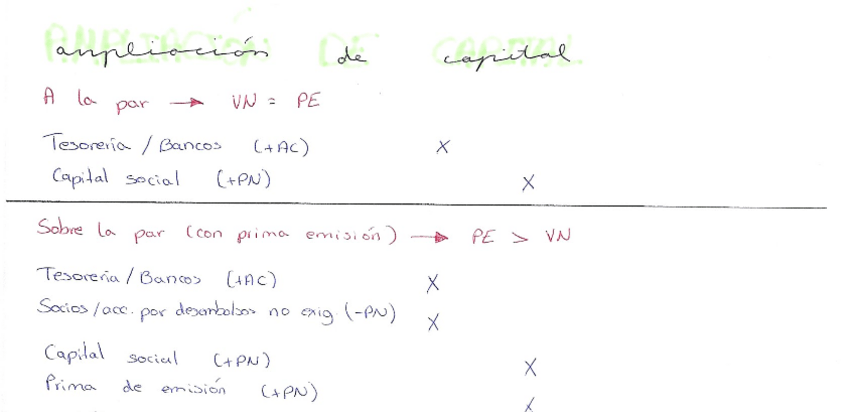 ampliación de capital
A la par → VN = PE
Tesorería / Bancos (+AC) X
Capital social (+PN) X
Sobre la par (con prima emisión) → PE > VN
Tesorería / Bancos (+AC) X
Socios/acc. por desembolsos no exig. (-PN) X
Capital social (+PN) X
Prima de emisión (+PN) X